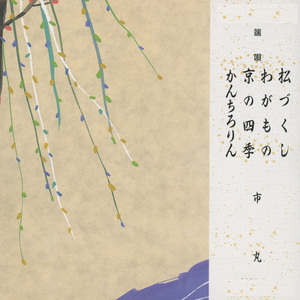 端唄
松づくし
わがもの
京の四季
かんちろりん
市丸